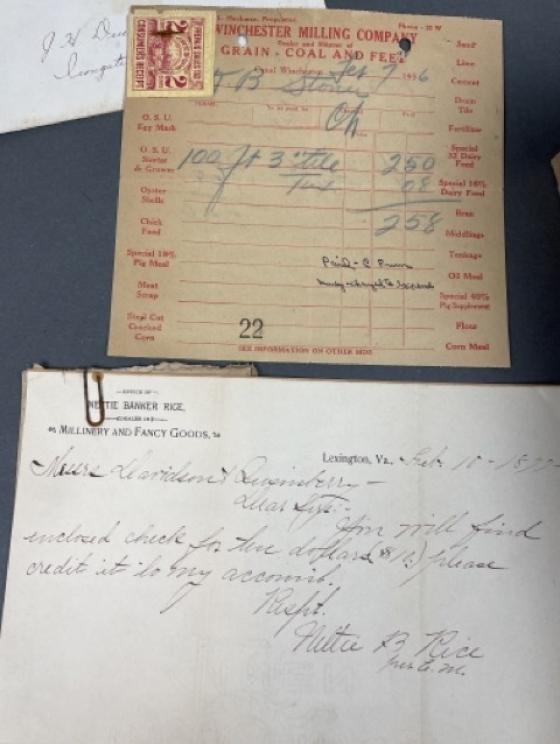 J H
Phone - 22 W
WINCHESTER MILLING COMPANY
Dealer and Shipper of
GRAIN - COAL AND FEED
Canal Winchester, 7 1936
B Stoner
Oh
CONSUMER'S RECEIPT
2
Seed
Lime
Cement
Drain
Tile
Fertilizer
Special
32 Dairy
Feed
Special 16%
Dairy Food
Bran
Middlings
Tankage
Oil Meal
Special 40%
Pig Supplement
Flour
Corn Meal
O. S. U.
Egg Mash
O. S. U.
Starter
& Grower
Oyster
Shells
Chick
Feed
Special 18%
Pig Meal
Meat
Scrap
Steel Cut
Cracked
Corn
100 ft 3" tile 2 50
Tax 08
2 58
Paid - C
22
SEE INFORMATION ON OTHER SIDE
OFFICE OF
NETTIE BANKER RICE,
DEALER IN
MILLINERY AND FANCY GOODS,
Lexington, Va., Feb. 10 - 18
Messrs Davidson &
Dear Sirs:-
You will find
enclosed check for ten dollars please
credit it to my account.
Respt.
Nettie B Rice